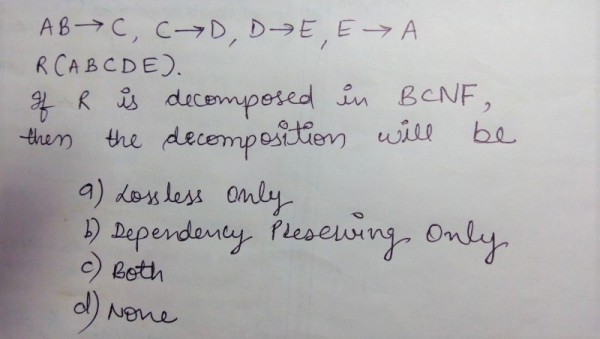 AB→C, C→D, D→E, E→A
R(ABCDE).
If R is decomposed in BCNF,
then the decomposition will be
a) Lossless Only
b) Dependency Preserving Only
c) Both
d) None